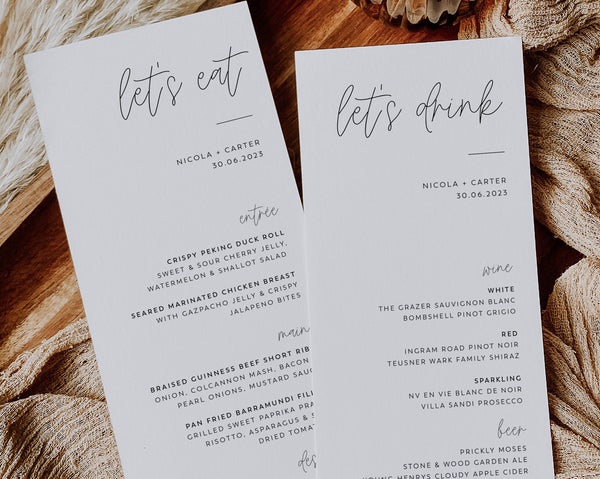 let's eat
NICOLA + CARTER
30.06.2023
entrée
CRISPY PEKING DUCK ROLL
SWEET & SOUR CHERRY JELLY,
WATERMELON & SHALLOT SALAD
SEARED MARINATED CHICKEN BREAST
WITH GAZPACHO JELLY & CRISPY
JALAPENO BITES
main
BRAISED GUINNESS BEEF SHORT RIB
ONION, COLCANNON MASH, BACON
PEARL ONIONS, MUSTARD
PAN FRIED BARRAMUNDI
GRILLED SWEET PAPRIKA
RISOTTO, ASPARAGUS &
DRIED
let's drink
NICOLA + CARTER
30.06.2023
wine
WHITE
THE GRAZER SAUVIGNON BLANC
BOMBSHELL PINOT GRIGIO
RED
INGRAM ROAD PINOT NOIR
TEUSNER WARK FAMILY SHIRAZ
SPARKLING
NV EN VIE BLANC DE NOIR
VILLA SANDI PROSECCO
beer
PRICKLY MOSES
STONE & WOOD GARDEN ALE
YOUNG HENRYS CLOUDY APPLE CIDER